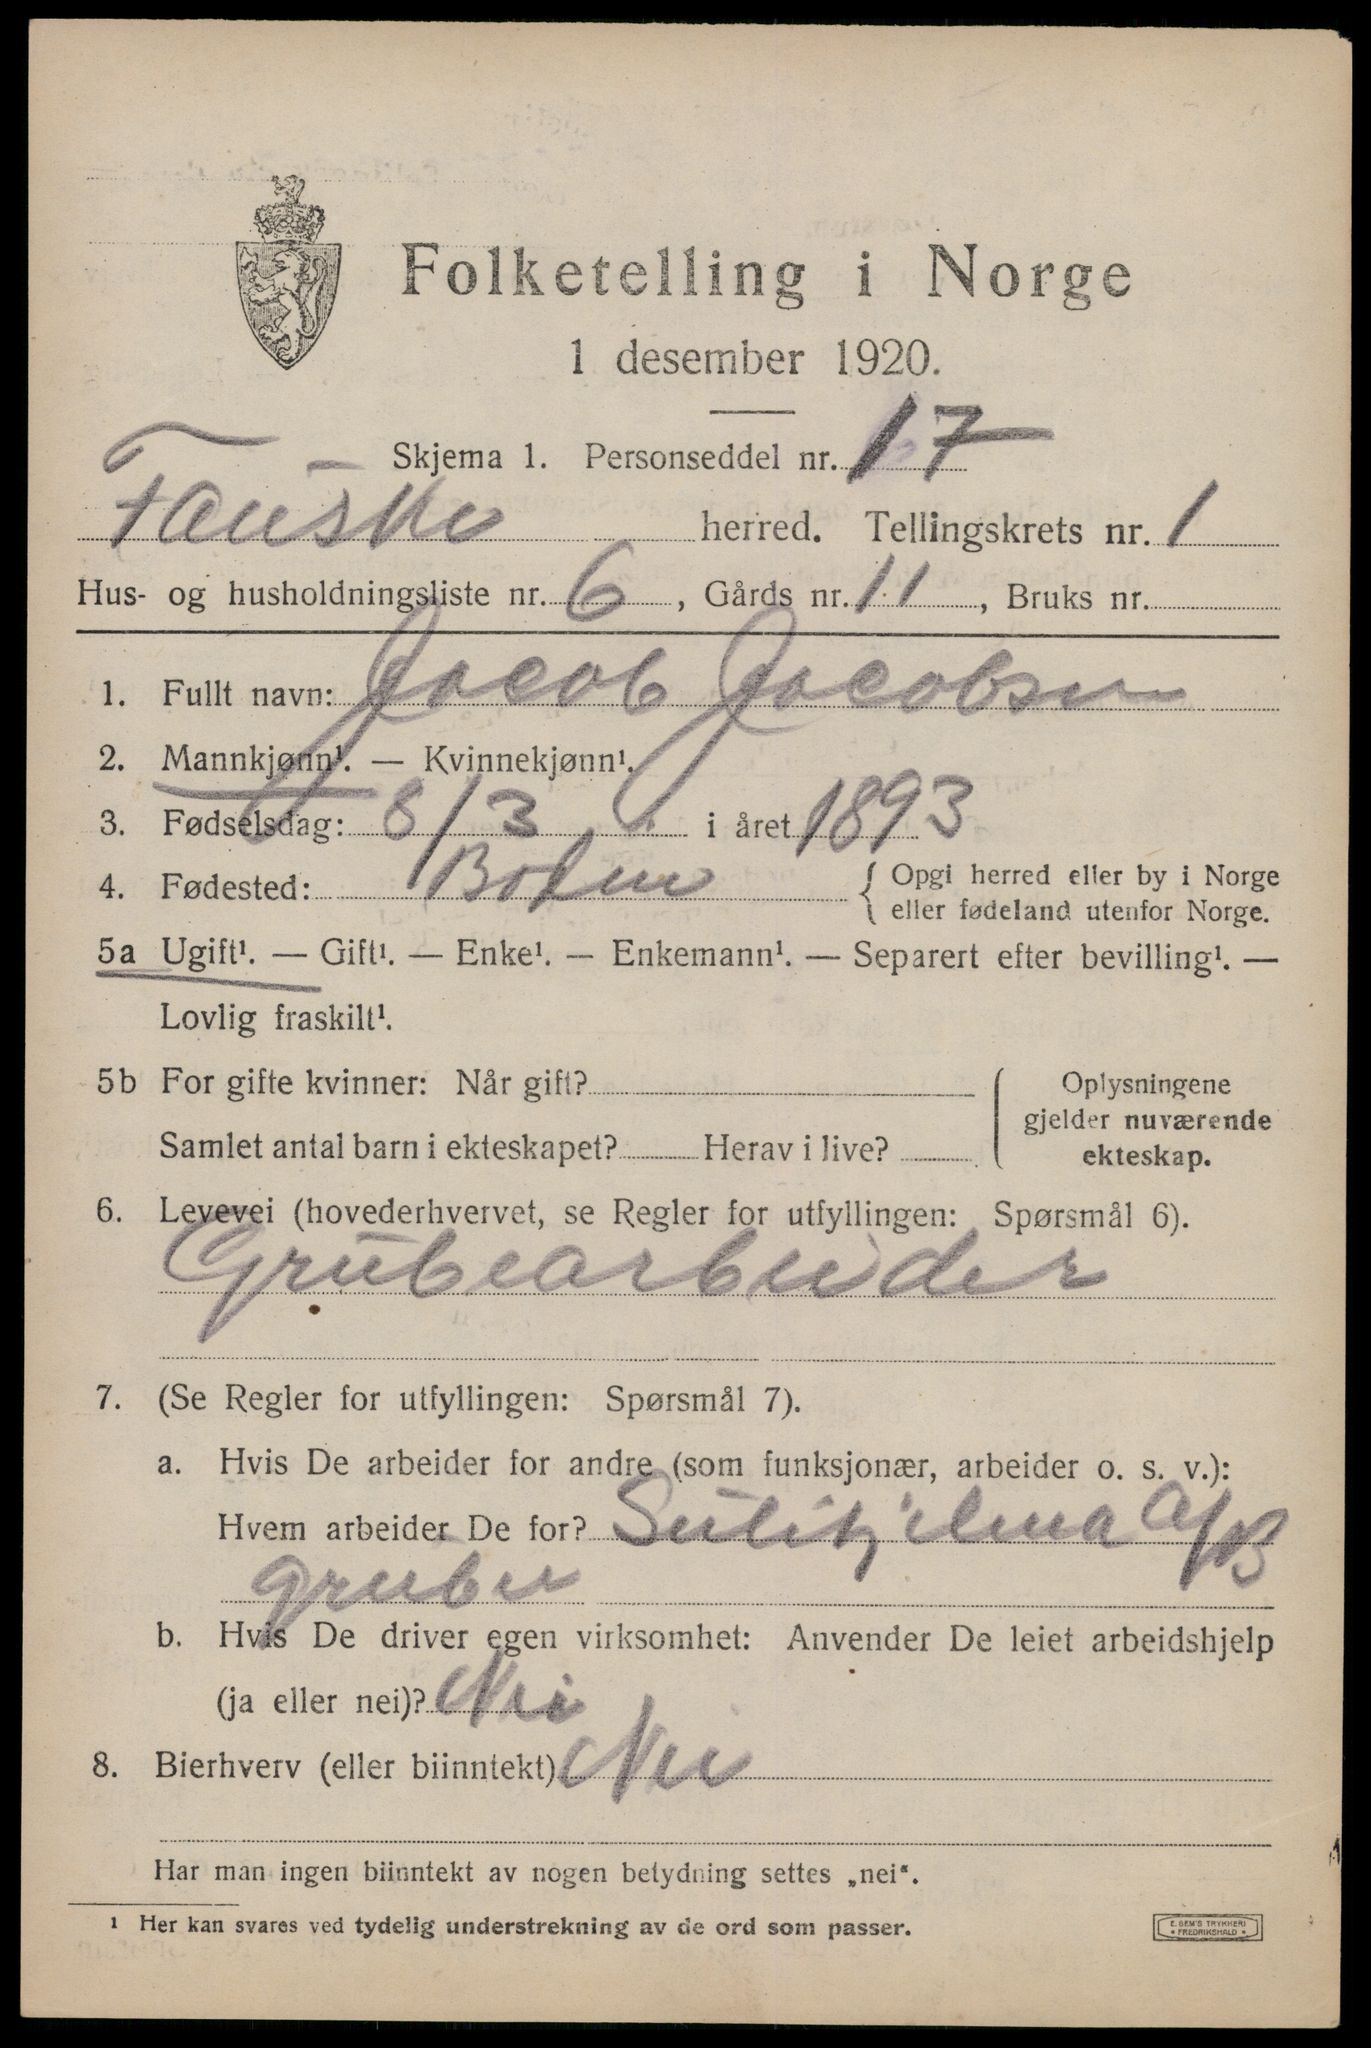 Folketelling i Norge
1 desember 1920.
Skjema 1. Personseddel nr. 17
Fauske herred. Tellingskrets nr. 1
Hus- og husholdningsliste nr. 6, Gårds nr. 11, Bruks nr.
1. Fullt navn: Jacob Jacobsen
2. Mannkjønn¹. — Kvinnekjønn¹.
3. Fødselsdag: 8/3 i året 1893
4. Fødested: { Opgi herred eller by i Norge
eller fødeland utenfor Norge.
5a Ugift¹. — Gift¹. — Enke¹. — Enkemann¹. — Separert efter bevilling¹. —
Lovlig fraskilt¹.
5b For gifte kvinner: Når gift?
Samlet antal barn i ekteskapet? Herav i live?
Oplysningene
gjelder nuværende
ekteskap.
6. Levevei (hovederhvervet, se Regler for utfyllingen: Spørsmål 6).
Grubearbeider
7. (Se Regler for utfyllingen: Spørsmål 7).
a. Hvis De arbeider for andre (som funksjonær, arbeider o. s. v.):
Hvem arbeider De for? Sulitjelma A/B
gruber
b. Hvis De driver egen virksomhet: Anvender De leiet arbeidshjelp
(ja eller nei)? Nei
8. Bierhverv (eller biinntekt) Nei
Har man ingen biinntekt av nogen betydning settes „nei“.
1 Her kan svares ved tydelig understrekning av de ord som passer.
E. SEM'S TRYKKERI
* FREDRIKSHALD *